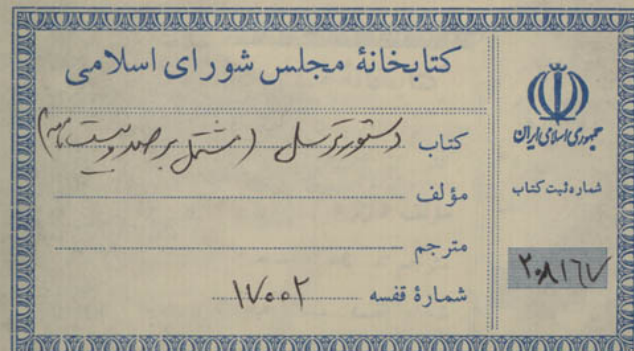 کتابخانهٔ مجلس شورای اسلامی
کتاب دستور ترسل (مشتمل بر صد و بیست نامه)
مؤلف
مترجم
شمارهٔ قفسه ۱۷۰۰۲
جمهوری اسلامی ایران
شماره ثبت کتاب
۲۰۸۱۶۷